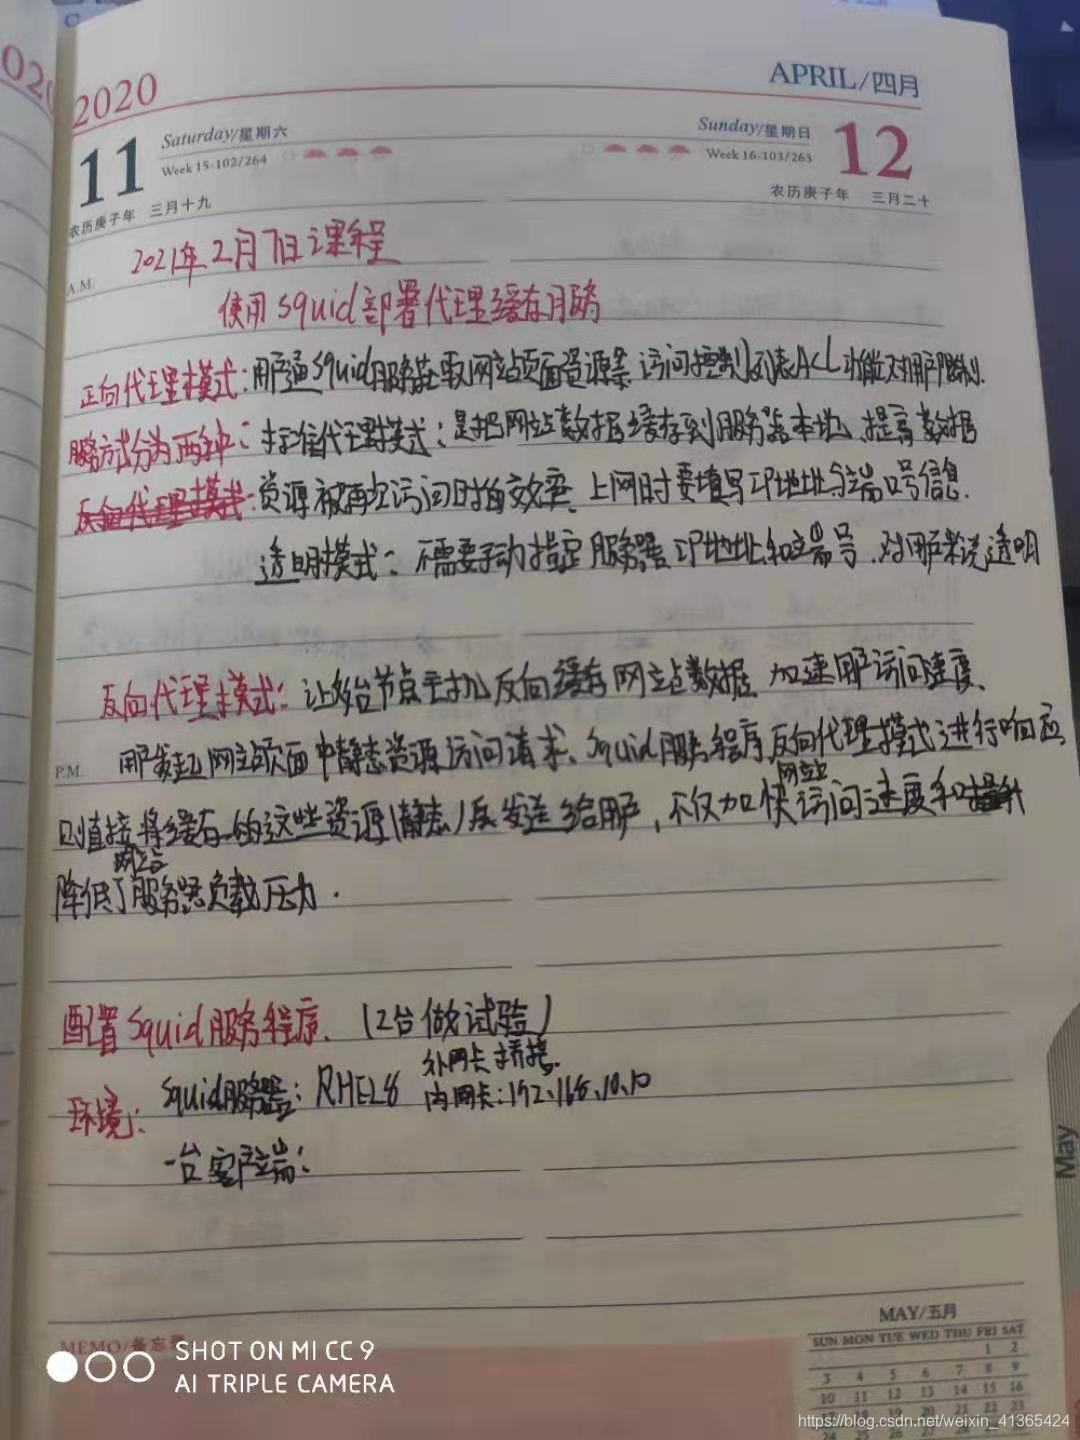 2020
APRIL/四月
11
Saturday/星期六
Week 15·102/264
农历庚子年 三月十九
Sunday/星期日
Week 16·103/263
12
农历庚子年 三月二十
A.M.
2021年2月7日课程
使用squid部署代理缓存服务
正向代理模式:用户通squid服务器取网站页面资源 访问控制列表ACL功能对用户限制.
服务方式分为两种: 标准代理模式:是把网站数据缓存到服务器本地,提高数据
反向代理模式 资源被再次访问时的效率、上网时要填写IP地址与端口号信息.
透明模式: 不需要手动指定服务器IP地址和端口号,对用户来说透明
反向代理模式: 让多台节点主机反向缓存网站数据 加速用户访问速度.
P.M.
用户发起网站页面中静态资源访问请求、squid服务程序反向代理模式进行响应
网站
则直接将缓存的这些资源(静态)反发送给用户,不仅加快访问速度和
网站
降低了服务器负载压力.
配置squid服务程序. (2台做试验)
外网卡桥接.
环境: squid服务器: RHEL8 内网卡:192.168.10.10
一台客户端:
May
MEMO/备忘录
MAY/五月
SUN MON TUE WED THU FRI SAT
1 2
3 4 5 6 7 8 9
10 11 12 13 14 15 16
18 19 20 21 22 23
24
SHOT ON MI CC 9
AI TRIPLE CAMERA
https://blog.csdn.net/weixin_41365424